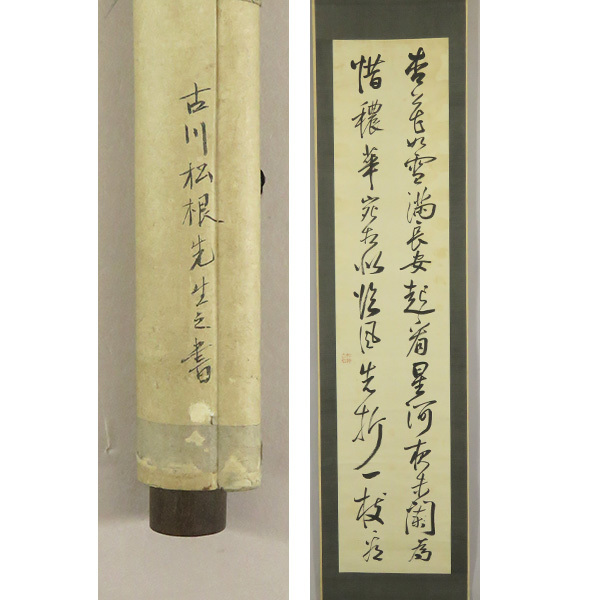 古川松根先生之書
杏花如雪滿長安起看星河夜未闌為
惜穠華宛相似臨風先折一枝看